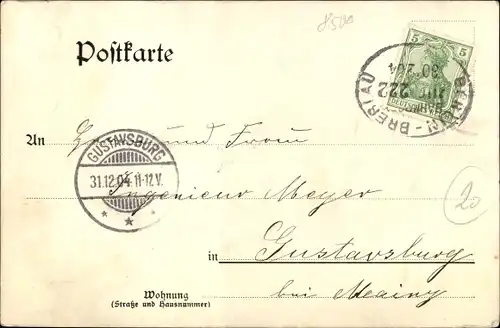 8500
Postkarte
5
DEUTSCHES REICH
BERLIN - BRESLAU
BAHNPOST
ZUG 222
30 12 04
An
Herrn und Frau
GUSTAVSBURG
31.12.04.11-12V.
Ingenieur Meyer
20
in Gustavsburg
Wohnung
(Straße und Hausnummer)
bei Mainz